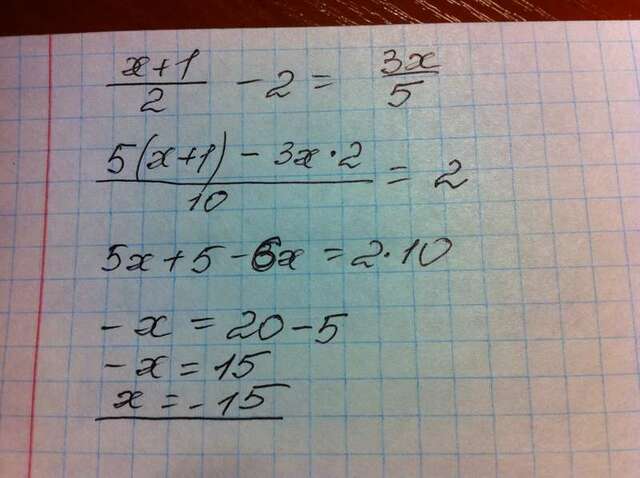 (x+1)/2 - 2 = 3x/5
(5(x+1) - 3x·2)/10 = 2
5x+5-6x=2·10
-x = 20-5
-x = 15
x = -15